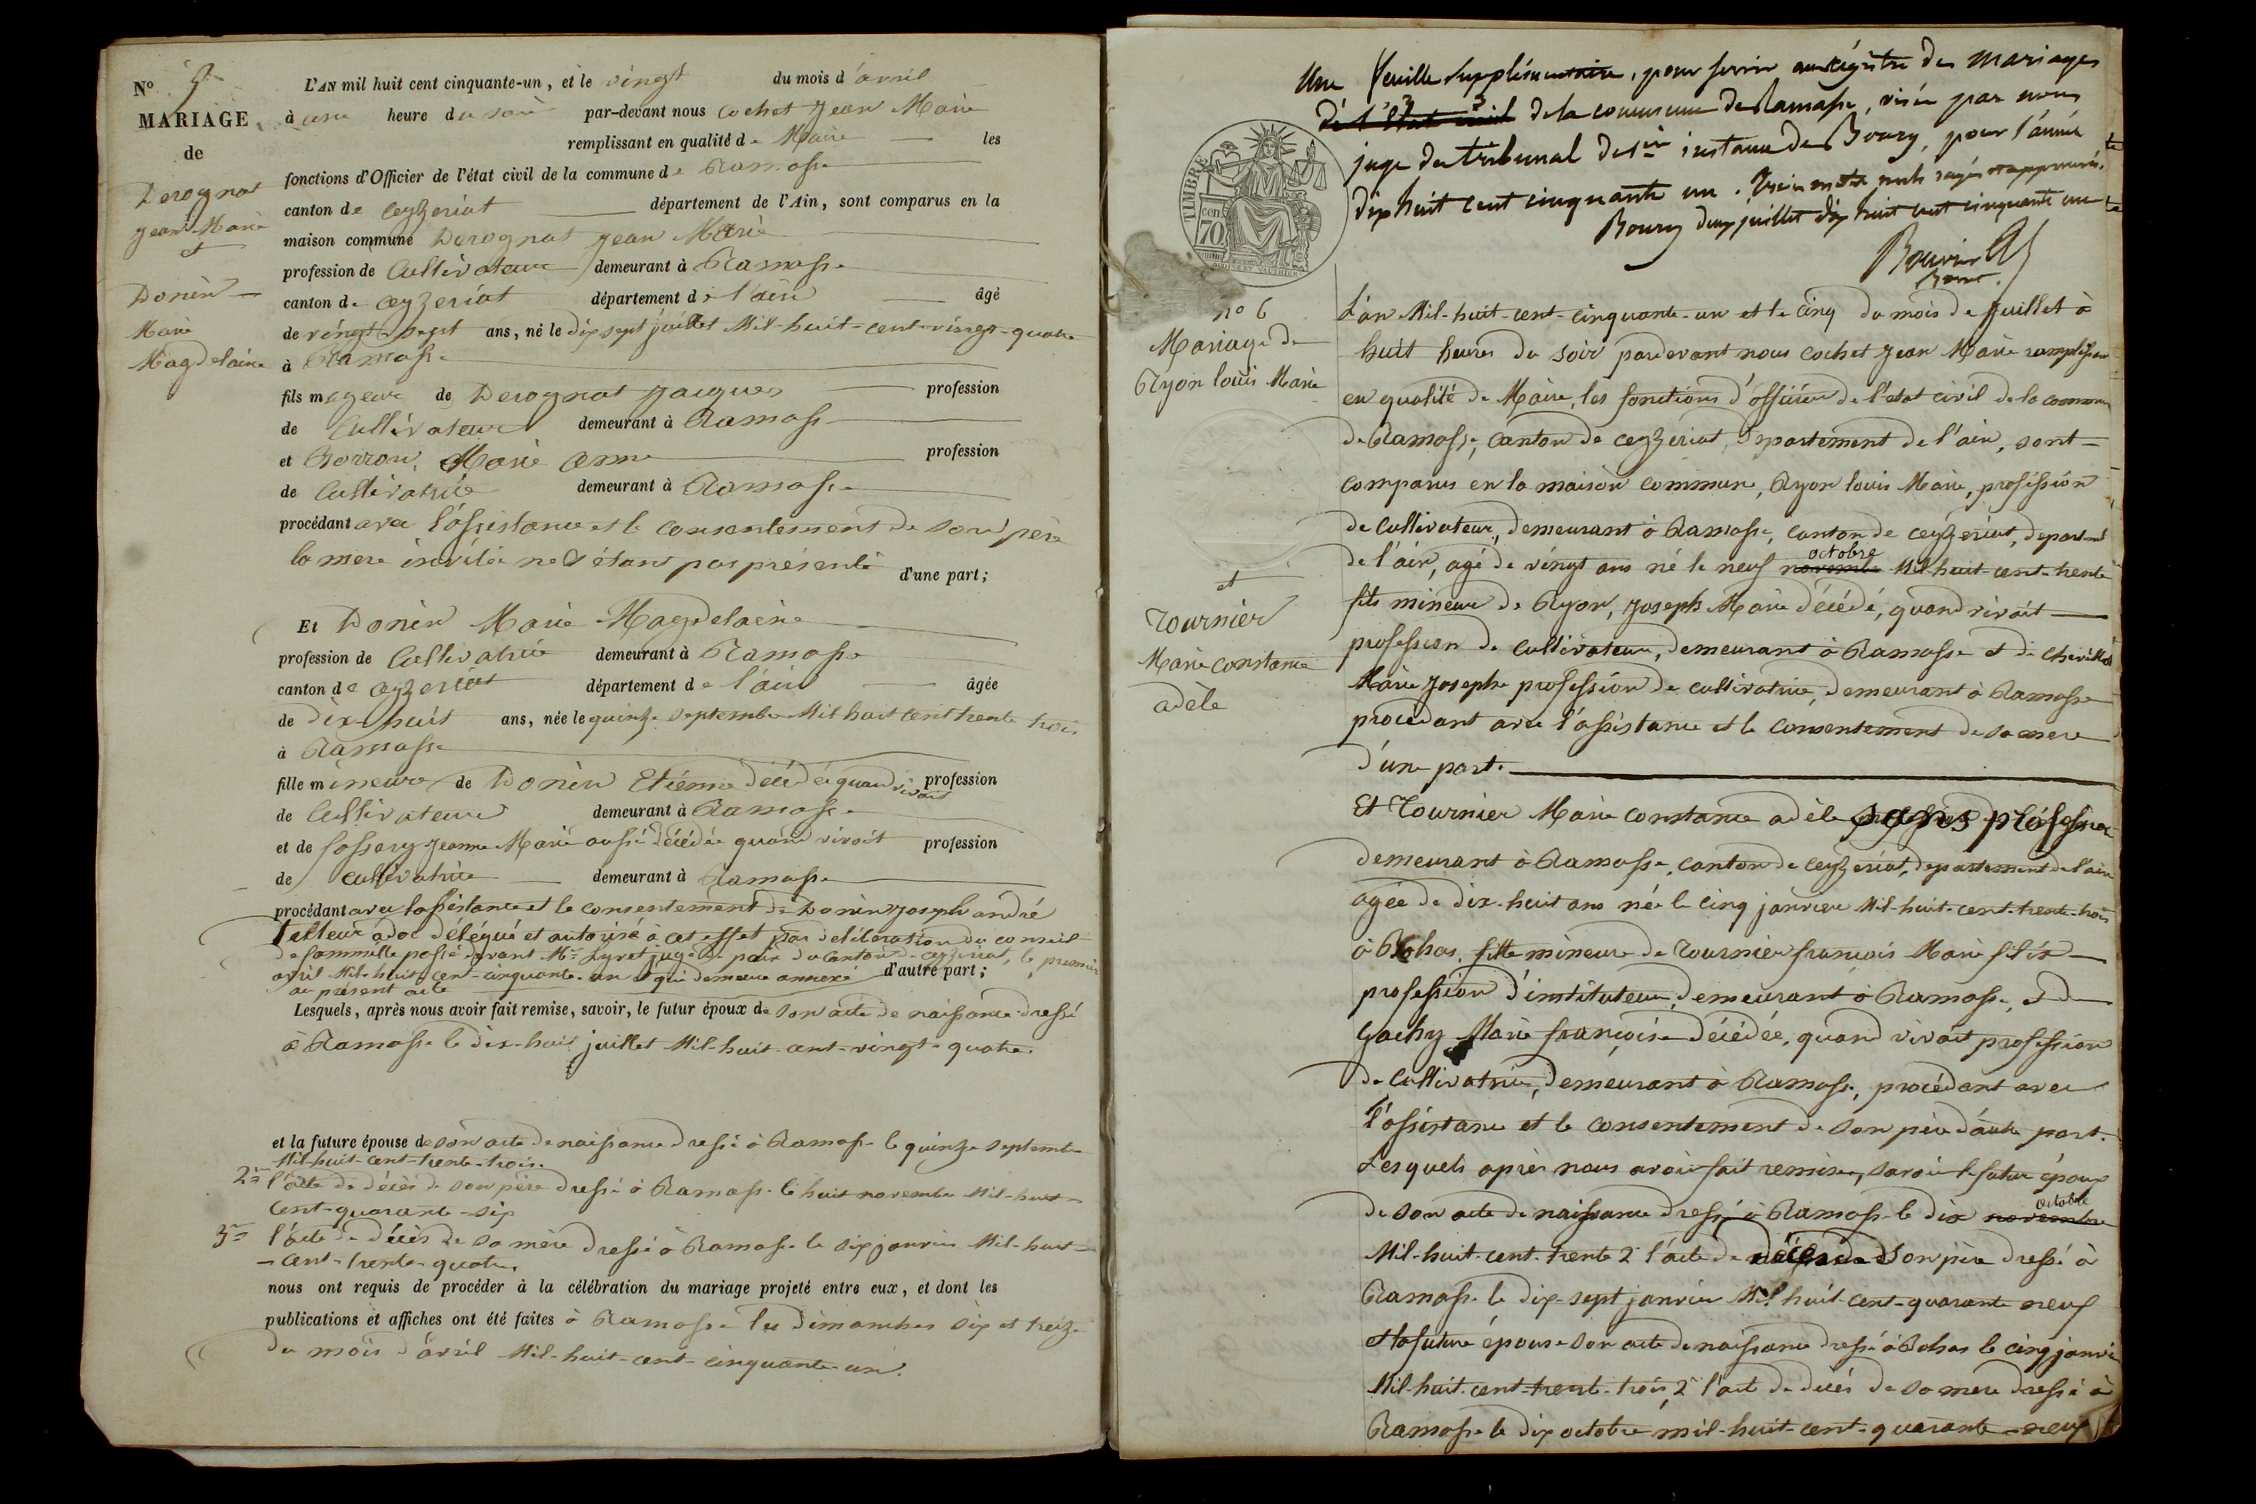 N° 5
MARIAGE
de
Derognat
Jean Marie
et
Donin
Marie
Magdelaine
L'AN mil huit cent cinquante-un, et le vingt du mois d'avril
à une heure du soir par-devant nous Cochet Jean Marie
remplissant en qualité de Maire les
fonctions d'Officier de l'état civil de la commune de Ramasse
canton de Ceyzeriat département de l'Ain, sont comparus en la
maison commune Derognat Jean Marie
profession de Cultivateur demeurant à Ramasse
canton de Ceyzeriat département de l'ain âgé
de vingt-sept ans, né le dix sept juillet Mil-huit-cent-vingt-quatre
à Ramasse
fils majeur de Derognat Jacques profession
de Cultivateur demeurant à Ramasse
et Borron Marie Anne profession
de Cultivatrice demeurant à Ramasse
procédant avec l'assistance et le consentement de son père
la mere invitée ne s'étant pas présenté
d'une part;
Et Donin Marie Magdelaine
profession de Cultivatrice demeurant à Ramasse
canton de Ceyzeriat département de l'ain âgée
de dix-huit ans, née le quinze septembre Mil huit cent trente trois
à Ramasse
fille mineure de Donin Etienne décédé quand vivait profession
de Cultivateur demeurant à Ramasse
et de Jeanne Marie aussi décédée quand vivait profession
de cultivatrice demeurant à Ramasse
procédant avec l'assistance et le consentement de Donin Joseph andré
tutteur adoc délégué et autorisé à cet effet par délibération du conseil
de fammille passé devant Mr Lyret juge de paix du Canton de ceyzeriat, le premier
avril Mil-huit-cent-cinquante-un et qui demeure annexé d'autre part;
au présent acte
Lesquels, après nous avoir fait remise, savoir, le futur époux de son acte de naissance dressé
à Ramasse le dix-huit juillet Mil-huit-cent-vingt-quatre.
et la future épouse de son acte de naissance dressé à Ramasse le quinze septembre
Mil-huit-cent-trente-trois.
2° l'acte de décès de son père dressé à Ramasse le huit novembre Mil-huit-
cent-quarante-six
3° l'acte de décès de sa mère dressé à Ramasse le six janvier Mil-huit-
-cent-trente-quatre.
nous ont requis de procéder à la célébration du mariage projeté entre eux, et dont les
publications et affiches ont été faites à Ramasse les dimanches six et treize
du mois d'avril Mil-huit-cent-cinquante-un.
Une feuille supplémentaire, pour servir au régistre des mariages
de l'Etat civil de la commune de Ramasse, visée par nous
juge du tribunal de 1ère instance de Bourg, pour l'année
dix huit cent cinquante un. Trois mots nuls rayés et approuvés.
Bourg deux juillet dix huit cent cinquante un
Bouvier
TIMBRE
cen 70
n° 6
Mariage de
Ryon louis Marie
et
Tournier
Marie constance
adèle
L'an Mil-huit-cent-cinquante-un et le cinq du mois de Juillet à
huit heures du soir pardevant nous Cochet Jean Marie remplissant
en qualité de Maire, les fonctions d'officier de l'etat civil de la commune
de Ramasse, canton de ceyzeriat, département de l'ain, sont-
comparus en la maison commune, Ryon louis Marie, profession
de cultivateur, demeurant à Ramasse, canton de ceyzeriat, departemt
octobre
de l'ain, agé de vingt ans né le neuf novembre Mil-huit-cent-trente
fils mineur de Ryon, Joseph Marie décédé, quand vivait
profession de cultivateur, demeurant à Ramasse et de
Marie Josephe profession de cultivatrice, demeurant à Ramasse
procédant avec l'assistance et le consentement de sa mere
d'une part.
Et Tournier Marie constance adèle sans profession
demeurant à Ramasse, canton de ceyzeriat, departement de l'ain
agée de dix-huit ans née le cinq janvier Mil-huit-cent-trente-trois
à Bohas, fille mineure de Tournier françois Marie félix
profession d'instituteur, demeurant à Ramasse, et de
Gachy Marie françoise décédée, quand vivait profession
de Cultivatrice, demeurant à Ramasse, procédant avec
l'assistance et le consentement de son père d'autre part.
Lesquels après nous avoir fait remise, savoir le futur époux
octobre
de son acte de naissance dressé à Ramasse le dix novembre
Mil-huit-cent-trente 2° l'acte de décès de son père dressé à
Ramasse le dix-sept janvier Mil huit-cent-quarante neuf
et la future épouse son acte de naissance dressé à Bohas le cinq janvier
Mil-huit-cent-trente-trois 2° l'acte de décés de sa mère dressé à
Ramasse le dix octobre mil-huit-cent-quarante-neuf